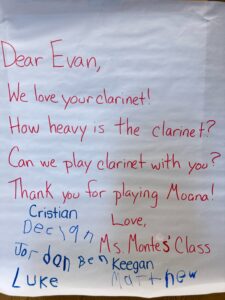 Dear Evan,
We love your clarinet!
How heavy is the clarinet?
Can we play clarinet with you?
Thank you for playing Moana!
Cristian Love,
Declan Ms. Montes' Class
Jordan Ben Keegan
Luke Matthew